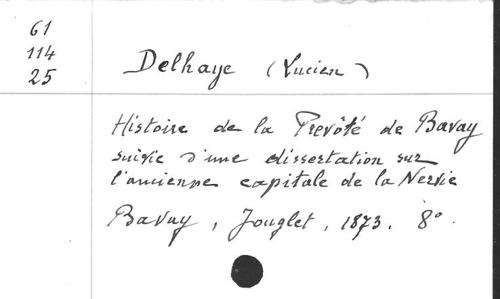 61
114
25
Delhaye (Lucien)
Histoire de la Prevôté de Bavay
suivie d'une dissertation sur
l'ancienne capitale de la Nervie
Bavay, Jouglet, 1873. 8°.